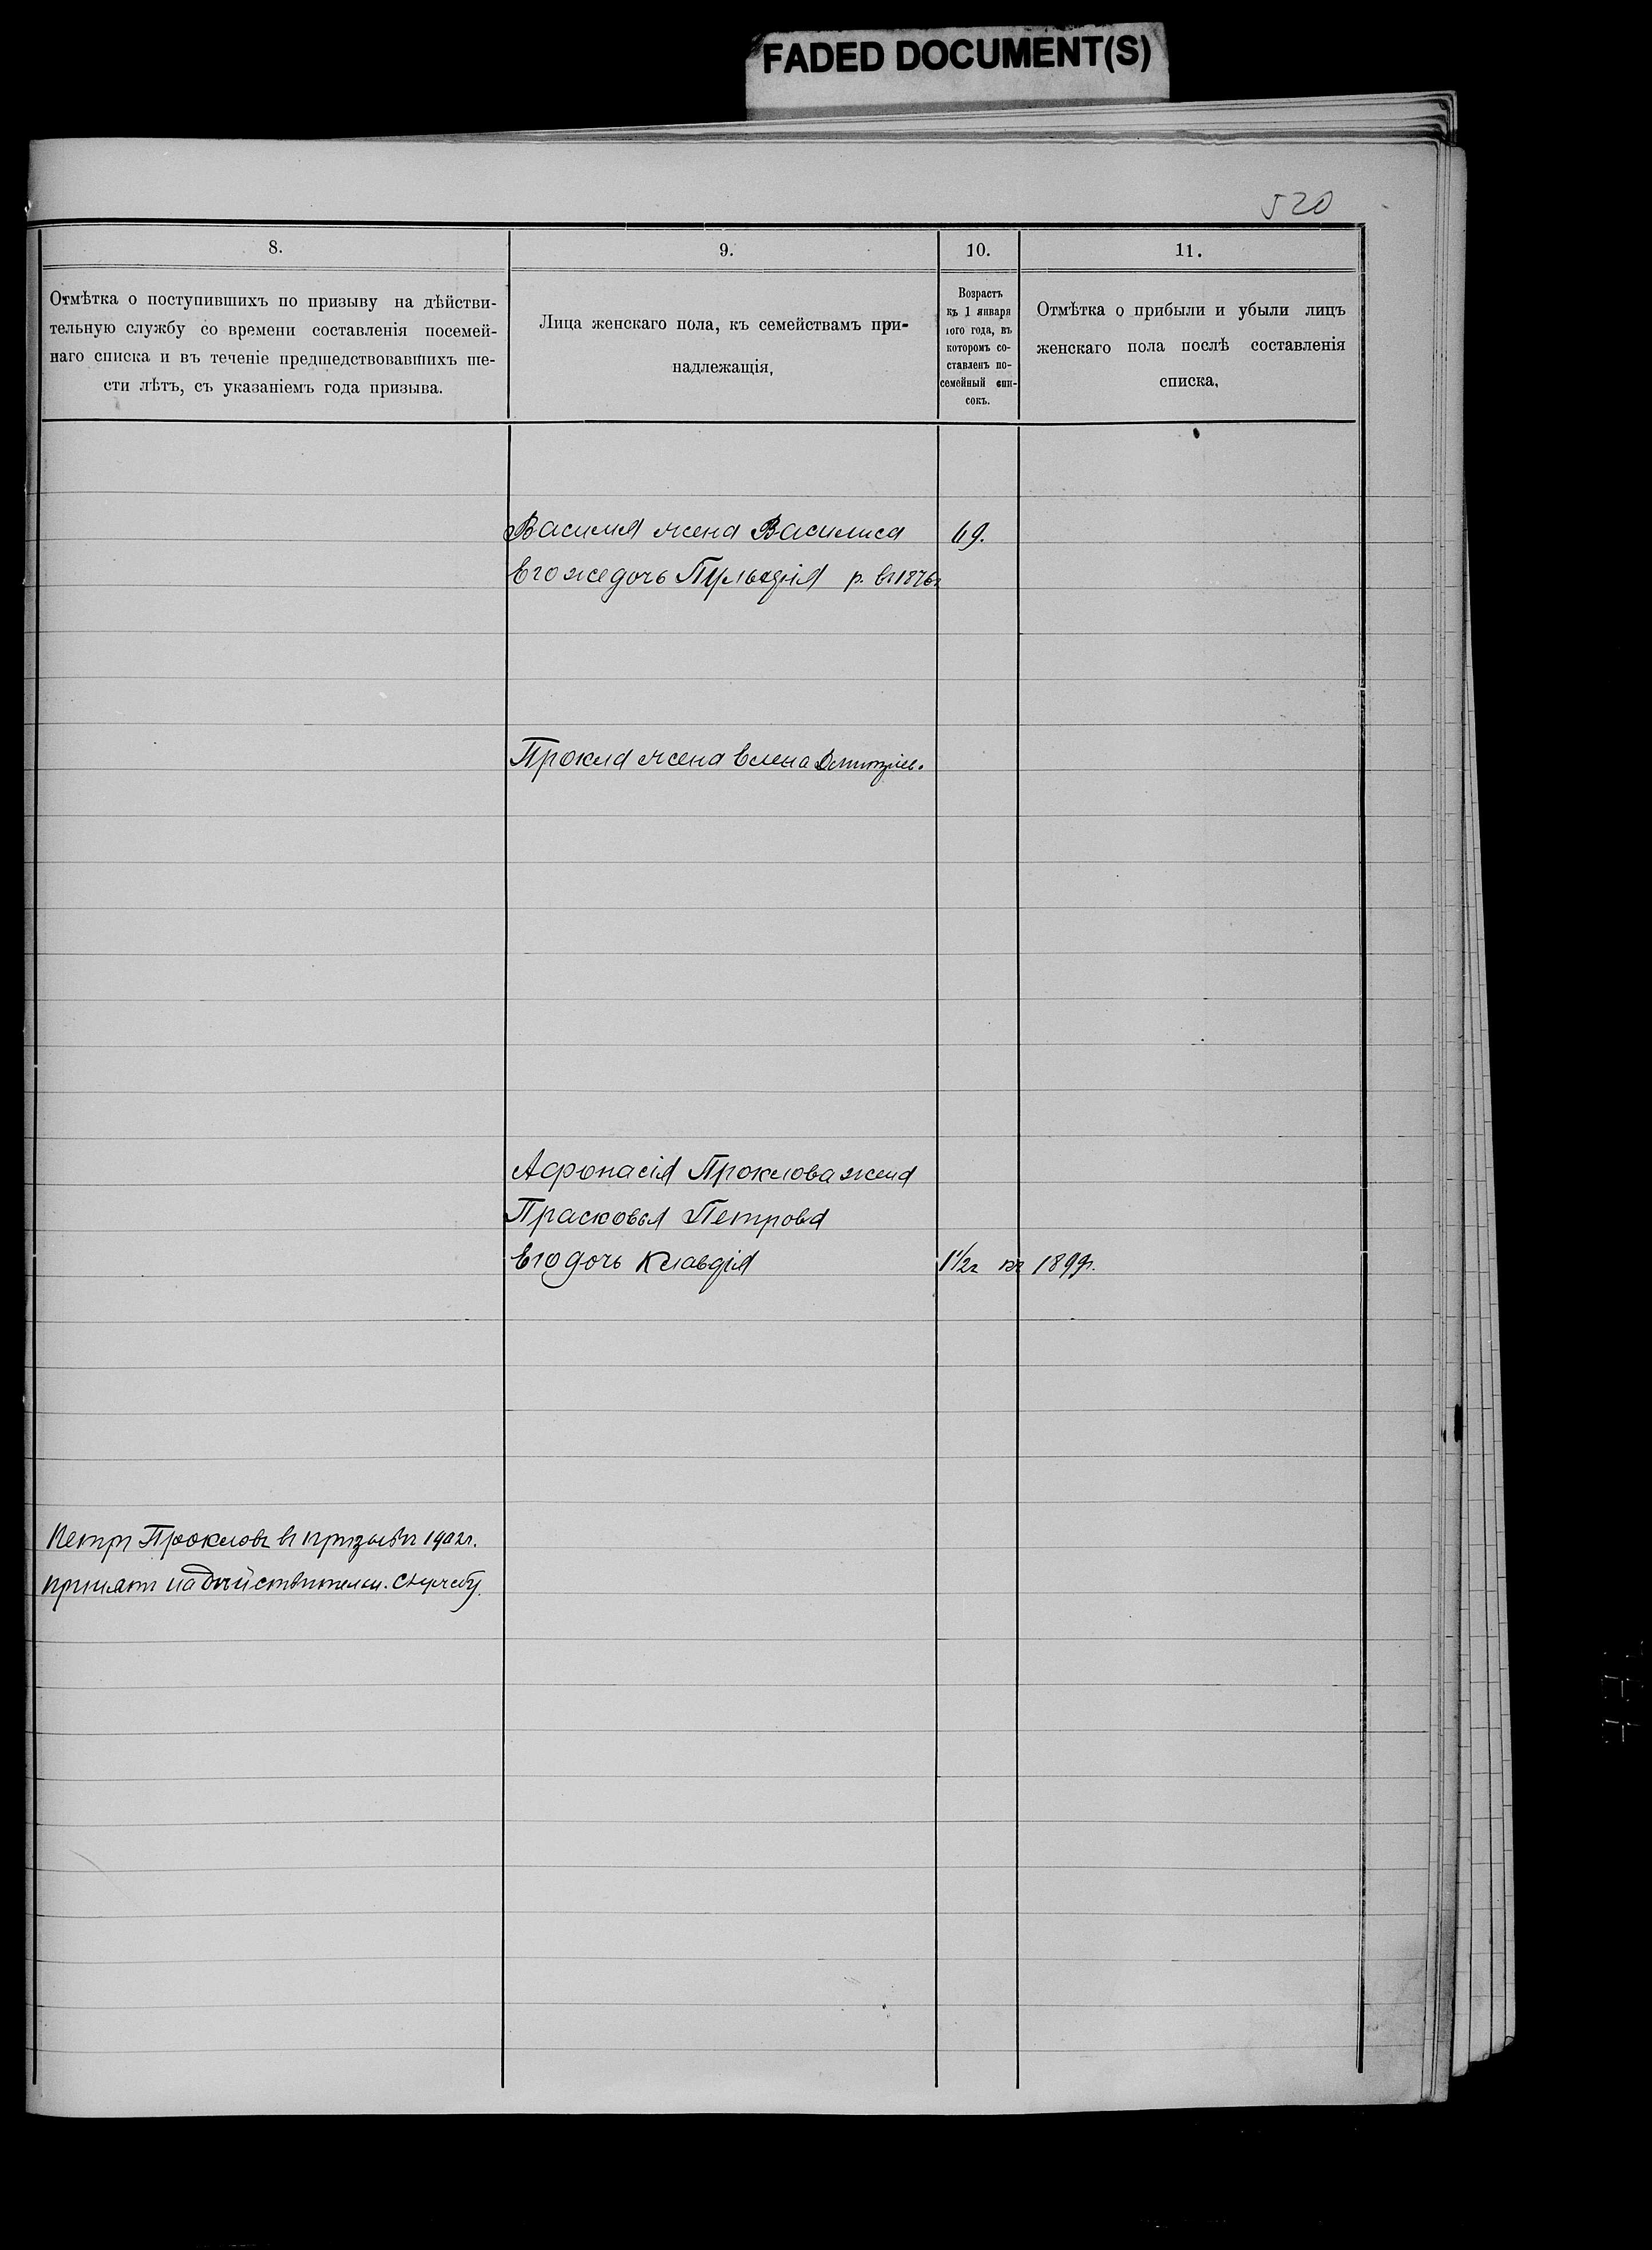 FADED DOCUMENT(S)
520
8.
9.
10.
11.
Отмѣтка о поступившихъ по призыву на дѣйстви-
тельную службу со времени составленія посемей-
наго списка и въ теченіе предшедствовавшихъ ше-
сти лѣтъ, съ указаніемъ года призыва.
Лица женскаго пола, къ семействамъ при-
надлежащія,
Возрастъ
къ 1 января
того года, въ
которомъ со-
ставленъ по-
семейный спи-
сокъ.
Отмѣтка о прибыли и убыли лицъ
женскаго пола послѣ составленія
списка,
Василія жена Василиса 49.
Его же дочь р. въ 1876г
Прокла жена Елена Дмитріев.
Афонасія Проклова жена
Прасковья Петрова
Его дочь Клавдія 1 1/2г къ 1899г.
Петръ Прокловъ въ призывъ 1902г.
принятъ на дѣйствительн. службу.